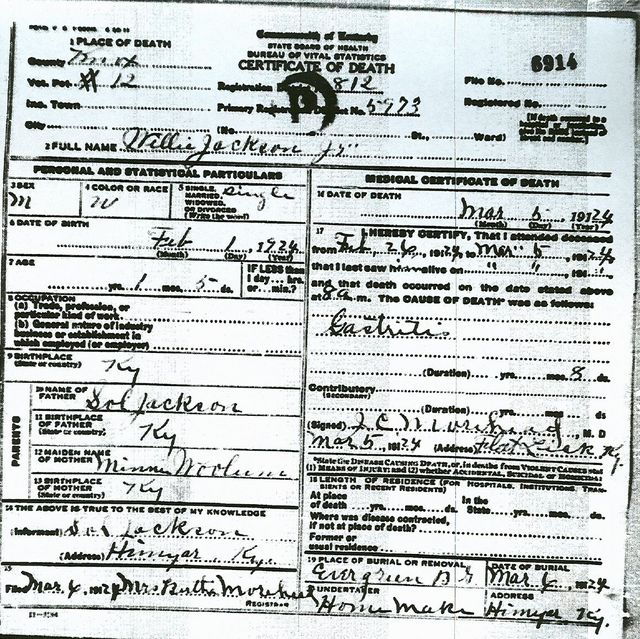 Commonwealth of Kentucky
STATE BOARD OF HEALTH
BUREAU OF VITAL STATISTICS
CERTIFICATE OF DEATH
1 PLACE OF DEATH
County Knox
Vot. Pct. # 12
Inc. Town
City
Registration 812
Primary No. 5973
(No. St., Ward)
File No. 6914
Registered No.
2 FULL NAME Willie Jackson Jr
PERSONAL AND STATISTICAL PARTICULARS
3 SEX M
4 COLOR OR RACE W
5 SINGLE, MARRIED, WIDOWED, OR DIVORCED (Write the word) Single
6 DATE OF BIRTH Feb 1, 1924
(Month) (Day) (Year)
7 AGE yrs. 1 mos. 5 ds.
IF LESS than 1 day hrs. or min.?
8 OCCUPATION
(a) Trade, profession, or particular kind of work
(b) General nature of industry business or establishment in which employed (or employer)
9 BIRTHPLACE (State or country) Ky
PARENTS
10 NAME OF FATHER Sol Jackson
11 BIRTHPLACE OF FATHER (State or country) Ky
12 MAIDEN NAME OF MOTHER Minnie Woolum
13 BIRTHPLACE OF MOTHER (State or country) Ky
14 THE ABOVE IS TRUE TO THE BEST OF MY KNOWLEDGE
(Informant) Sol Jackson
(Address) Himyar, Ky.
15
Filed Mar. 6, 1924 Mrs. Butha
REGISTRAR
MEDICAL CERTIFICATE OF DEATH
16 DATE OF DEATH
Mar 5, 1924
(Month) (Day) (Year)
17 I HEREBY CERTIFY, That I attended deceased
from Feb. 26, 1924, to Mar. 5, 1924
that I last saw him alive on " " , 191
and that death occurred on the date stated above
at 8 a m. The CAUSE OF DEATH* was as follows:
Gastritis
(Duration) yrs. mos. 8 ds.
Contributory
(SECONDARY)
(Duration) yrs. mos. ds
(Signed) J. C. , M. D
Mar 5, 1924 (Address) Flat Lick, Ky.
*State the DISEASE CAUSING DEATH, or, in deaths from VIOLENT CAUSES
(1) MEANS OF INJURY; and (2) whether ACCIDENTAL, SUICIDAL or HOMICIDAL
18 LENGTH OF RESIDENCE (FOR HOSPITALS, INSTITUTIONS, TRANSIENTS OR RECENT RESIDENTS)
At place of death yrs. mos. ds.
In the State yrs. mos. ds.
Where was disease contracted,
if not at place of death?
Former or
usual residence
19 PLACE OF BURIAL OR REMOVAL Evergreen B G
DATE OF BURIAL Mar 6, 1924
20 UNDERTAKER Home Make
ADDRESS Himyar Ky.